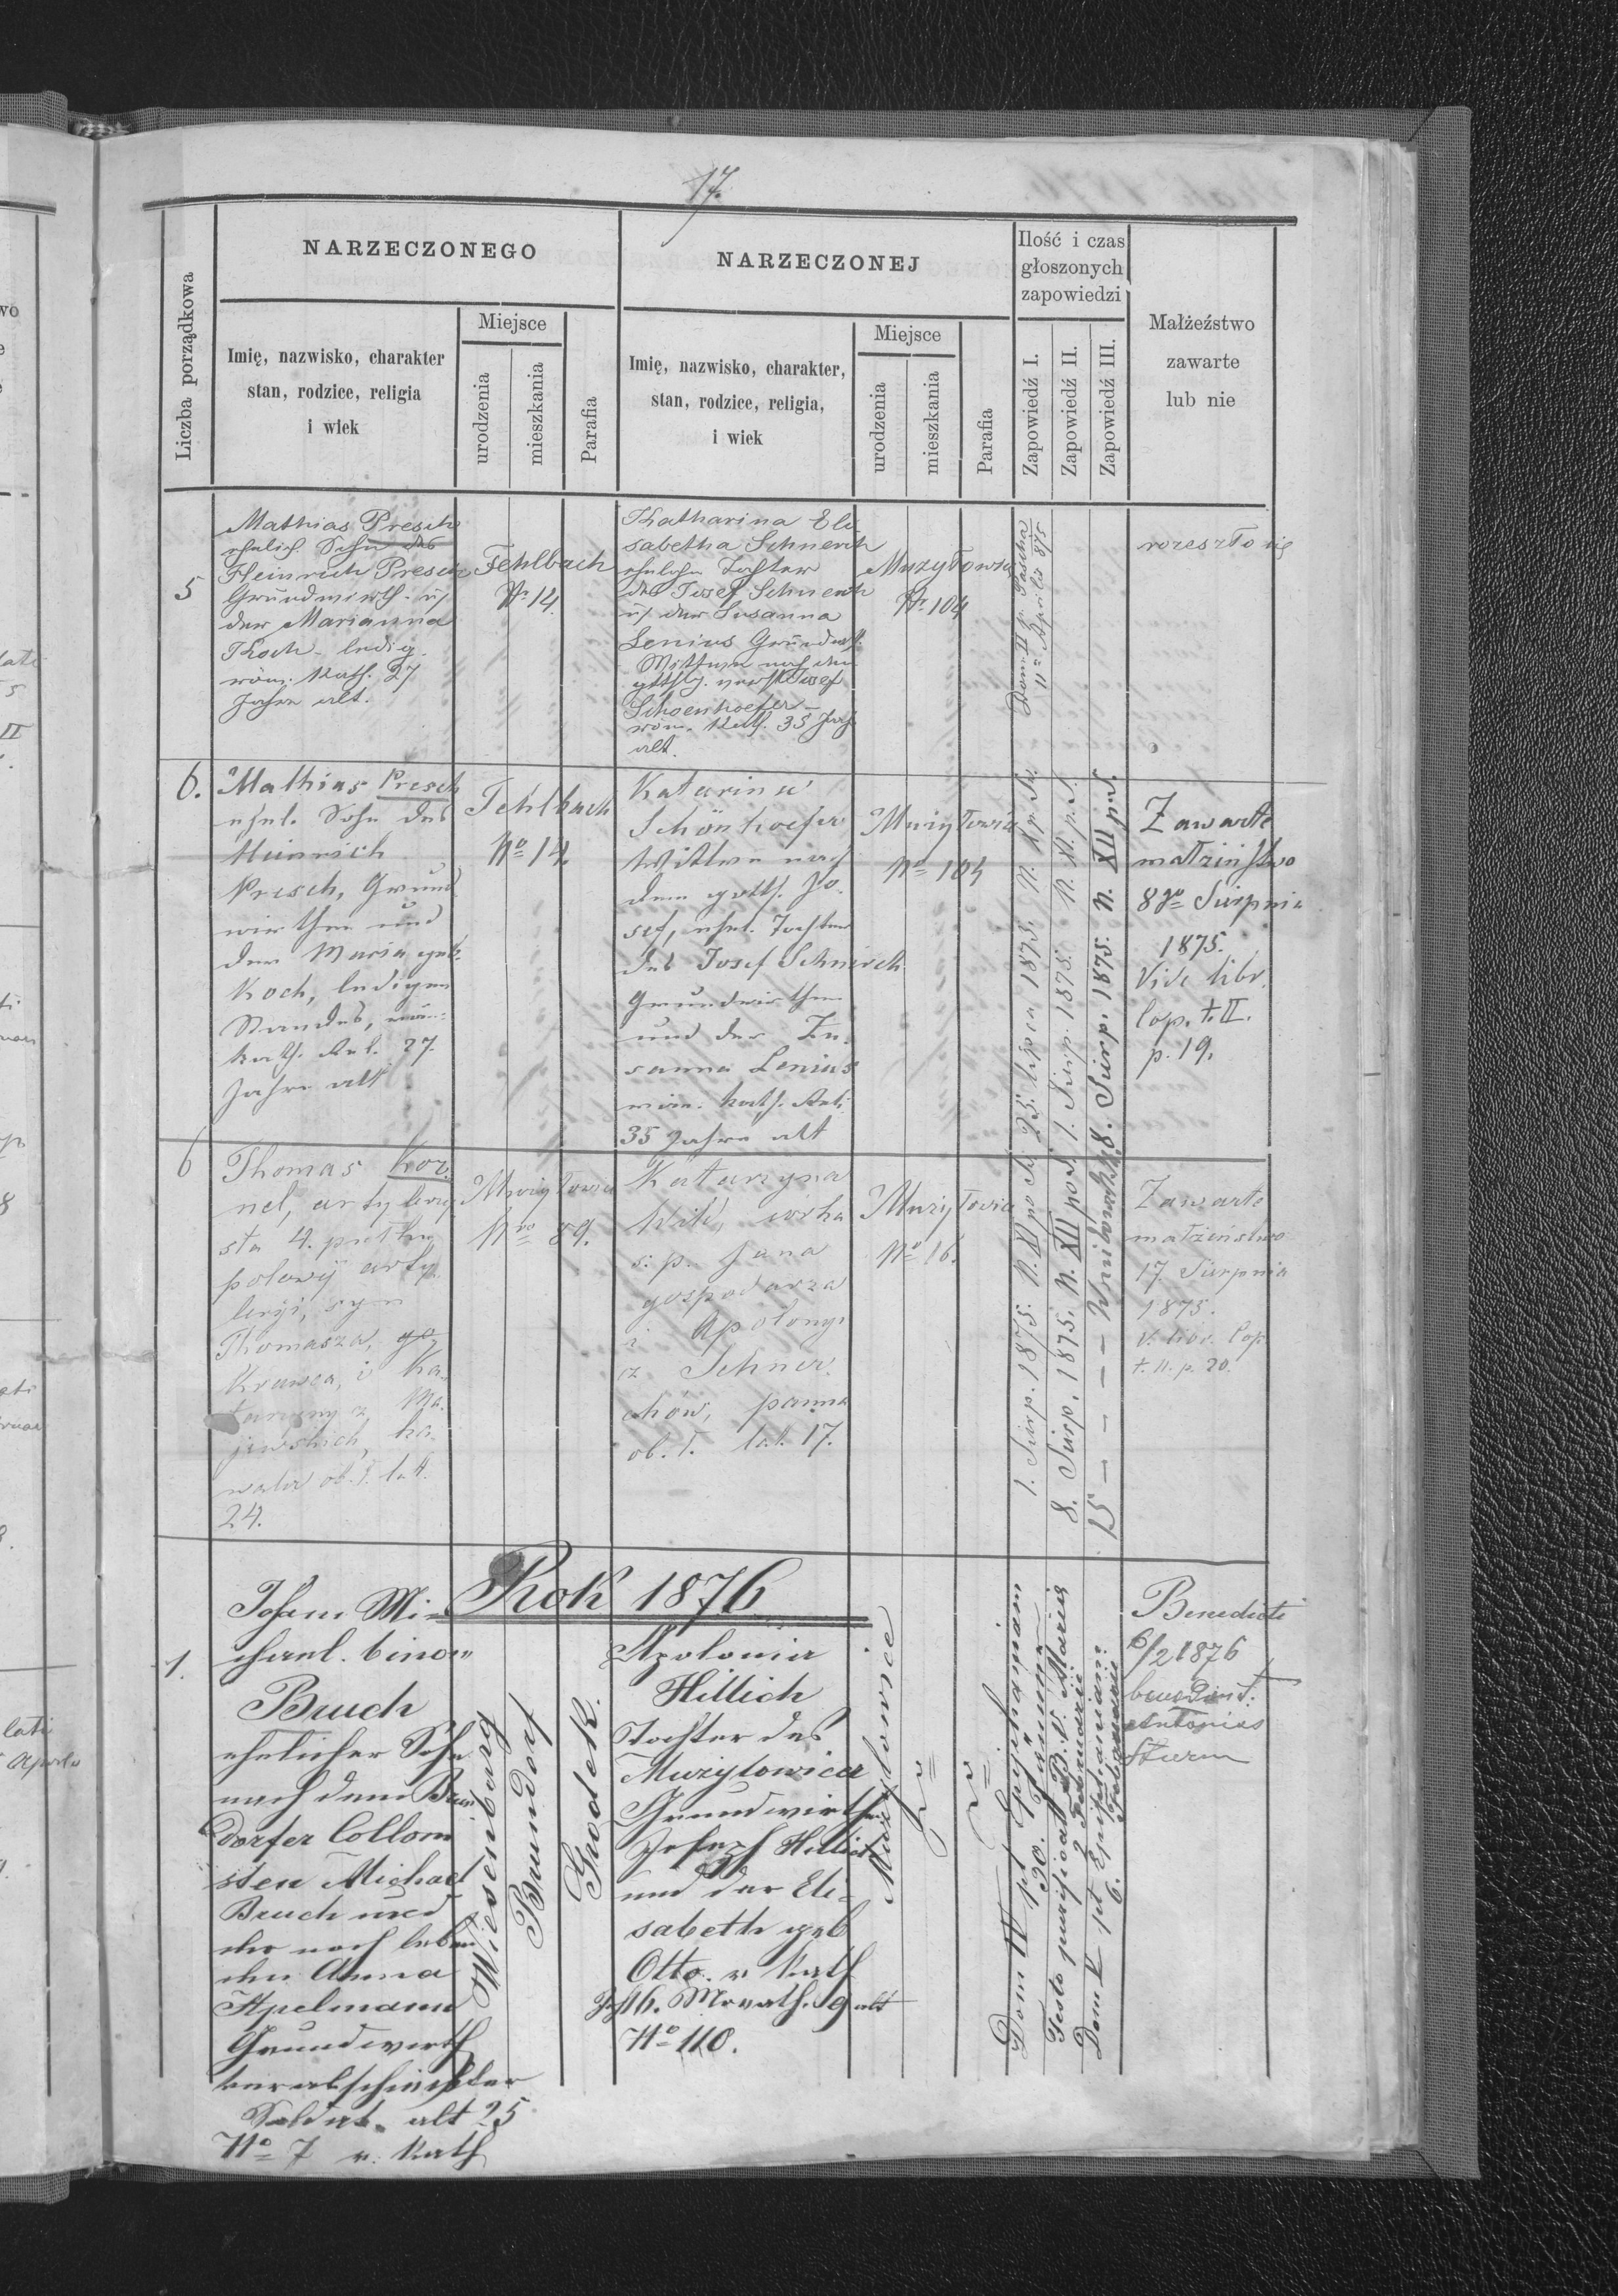 17.
Liczba porządkowa
NARZECZONEGO
Imię, nazwisko, charakter
stan, rodzice, religia
i wiek
Miejsce
urodzenia
mieszkania
Parafia
NARZECZONEJ
Imię, nazwisko, charakter,
stan, rodzice, religia,
i wiek
Miejsce
urodzenia
mieszkania
Parafia
Ilość i czas
głoszonych
zapowiedzi
Zapowiedź I.
Zapowiedź II.
Zapowiedź III.
Małżeźstwo
zawarte
lub nie
5
Mathias Presch
ehelich. Sohn des
Heinrich Presch
Grundwirth u/
der Marianna
Koch - ledig.
röm. Kath. 27
Jahre alt.
Fehlbach
Nr. 14.
Katharina Eli
sabetha Schnerch
eheliche Tochter
des Josef Schnerch
u/ der Susanna
Lenius Grundw.
Wittwe nach dem
Josef
Schoenhoefer
röm. Kath. 35 Jah.
alt.
Muzyłowice
Nr. 104
Dom II p. Pascha
11 Aprilis 875
rozeszło się
6.
Mathias Presch
ehel. Sohn des
Heinrich
Presch, Grund
wirthen und
der Maria geb.
Koch, ledigen
Standes, röm:
kath. Rel. 27.
Jahre alt
Fehlbach
No 14.
Katarina
Schönhoefer
Wittwe nach
dem gotts. Jo.
sef, ehel. Tochter
des Josef Schnerch
Grundwirthen
und der Zu.
sanna Lenius
röm. kath. Rel.
35 Jahre alt
Muzyłowice
No 104
25. lipca 1875. N. X p. Św.
1. Sierp. 1875. N. XI. p. S.
8. Sierp. 1875. N. XII p. S.
Zawarte
małżeństwo
8go Sierpnia
1875.
Vide libr.
Cop. t. II.
p. 19.
6
Thomas Kor.
nel, artylerzy
sta 4. pułku
polowy arty.
leryi, syn
Thomasza, go
Krawca, i Ka.
tarzyny z Ma.
jewskich, ka.
waler ob. ł. lat.
24.
Muzyłowice
Nro 89.
Katarzyna
Wild, córka
ś. p. Jana
gospodarza
i Apolonyi
z Schner.
chów, panna
ob. ł. lat. 17.
Muzyłowice
No 16.
1. Sierp. 1875. N. XI po Ś.
8. Sierp. 1875. N. XII po Ś.
15 - - - - Wniebowzięcie
Zawarte
małżeństwo
17. Sierpnia
1875.
V. libr. Cop
t. II. p. 20.
Rok 1876
1.
Johann Mi-
chael. binom
Bruch
ehelicher Sohn
nach dem Brun
dorfer Collom
sten Michael
Bruch und
der noch leben
den Anna
Apelmann
Grundwirth
verabschiedeter
Soldat. alt 25
No 7 r. Kath
Wiesenberg
Brundorf
Grodek.
Apolonia
Hillich
Tochter des
Muzylowicer
Grundwirthen
Joseph Hillich
und der Eli-
sabeth geb
Otto. r Kath
Jh 16. Monath. 9 alt
No 110.
Muzylowice
Dom IV pt Epiphaniam
30. Januar
Festo purificat B. V. Mariae
2 Februarii
Dom. V pt Epiphaniam:
6. Februarii
Benedicti
6/2 1876
bened
Antonius
Sturm